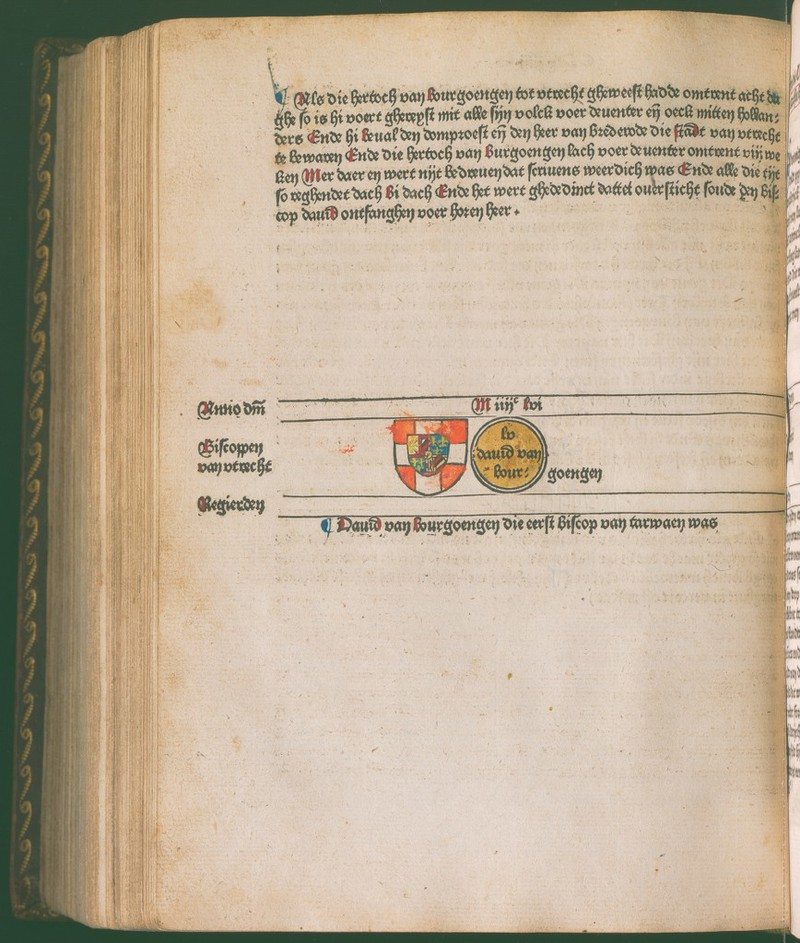 ¶ Als die hertoch van bourgoengen tot vtrecht gheweest hadde omtrent acht da
ghe so is hi voert ghereyst mit alle sijn volck voer deuenter eñ oeck mitten hollan⸗
ders Ende hi beual den domproest eñ den heer van brederode die stadt van vtrecht
te bewaren Ende die hertoch van burgoengen lach voer deuenter omtrent viij we
ken Mer daer en wert nijt bedreuen dat scriuens weerdich was Ende alle die tijt
so reghendet dach bi dach Ende het wert ghededinct dattet ouersticht soude den bis⸗
cop dauid ontfanghen voer horen heer .
Anno dm̄
M iiijᶜ lvi
Biscoppen
van vtrecht
lv
dauid van
bour⸗
goengen
Regierden
¶ Dauid van bourgoengen die eerst biscop van tarwaen was